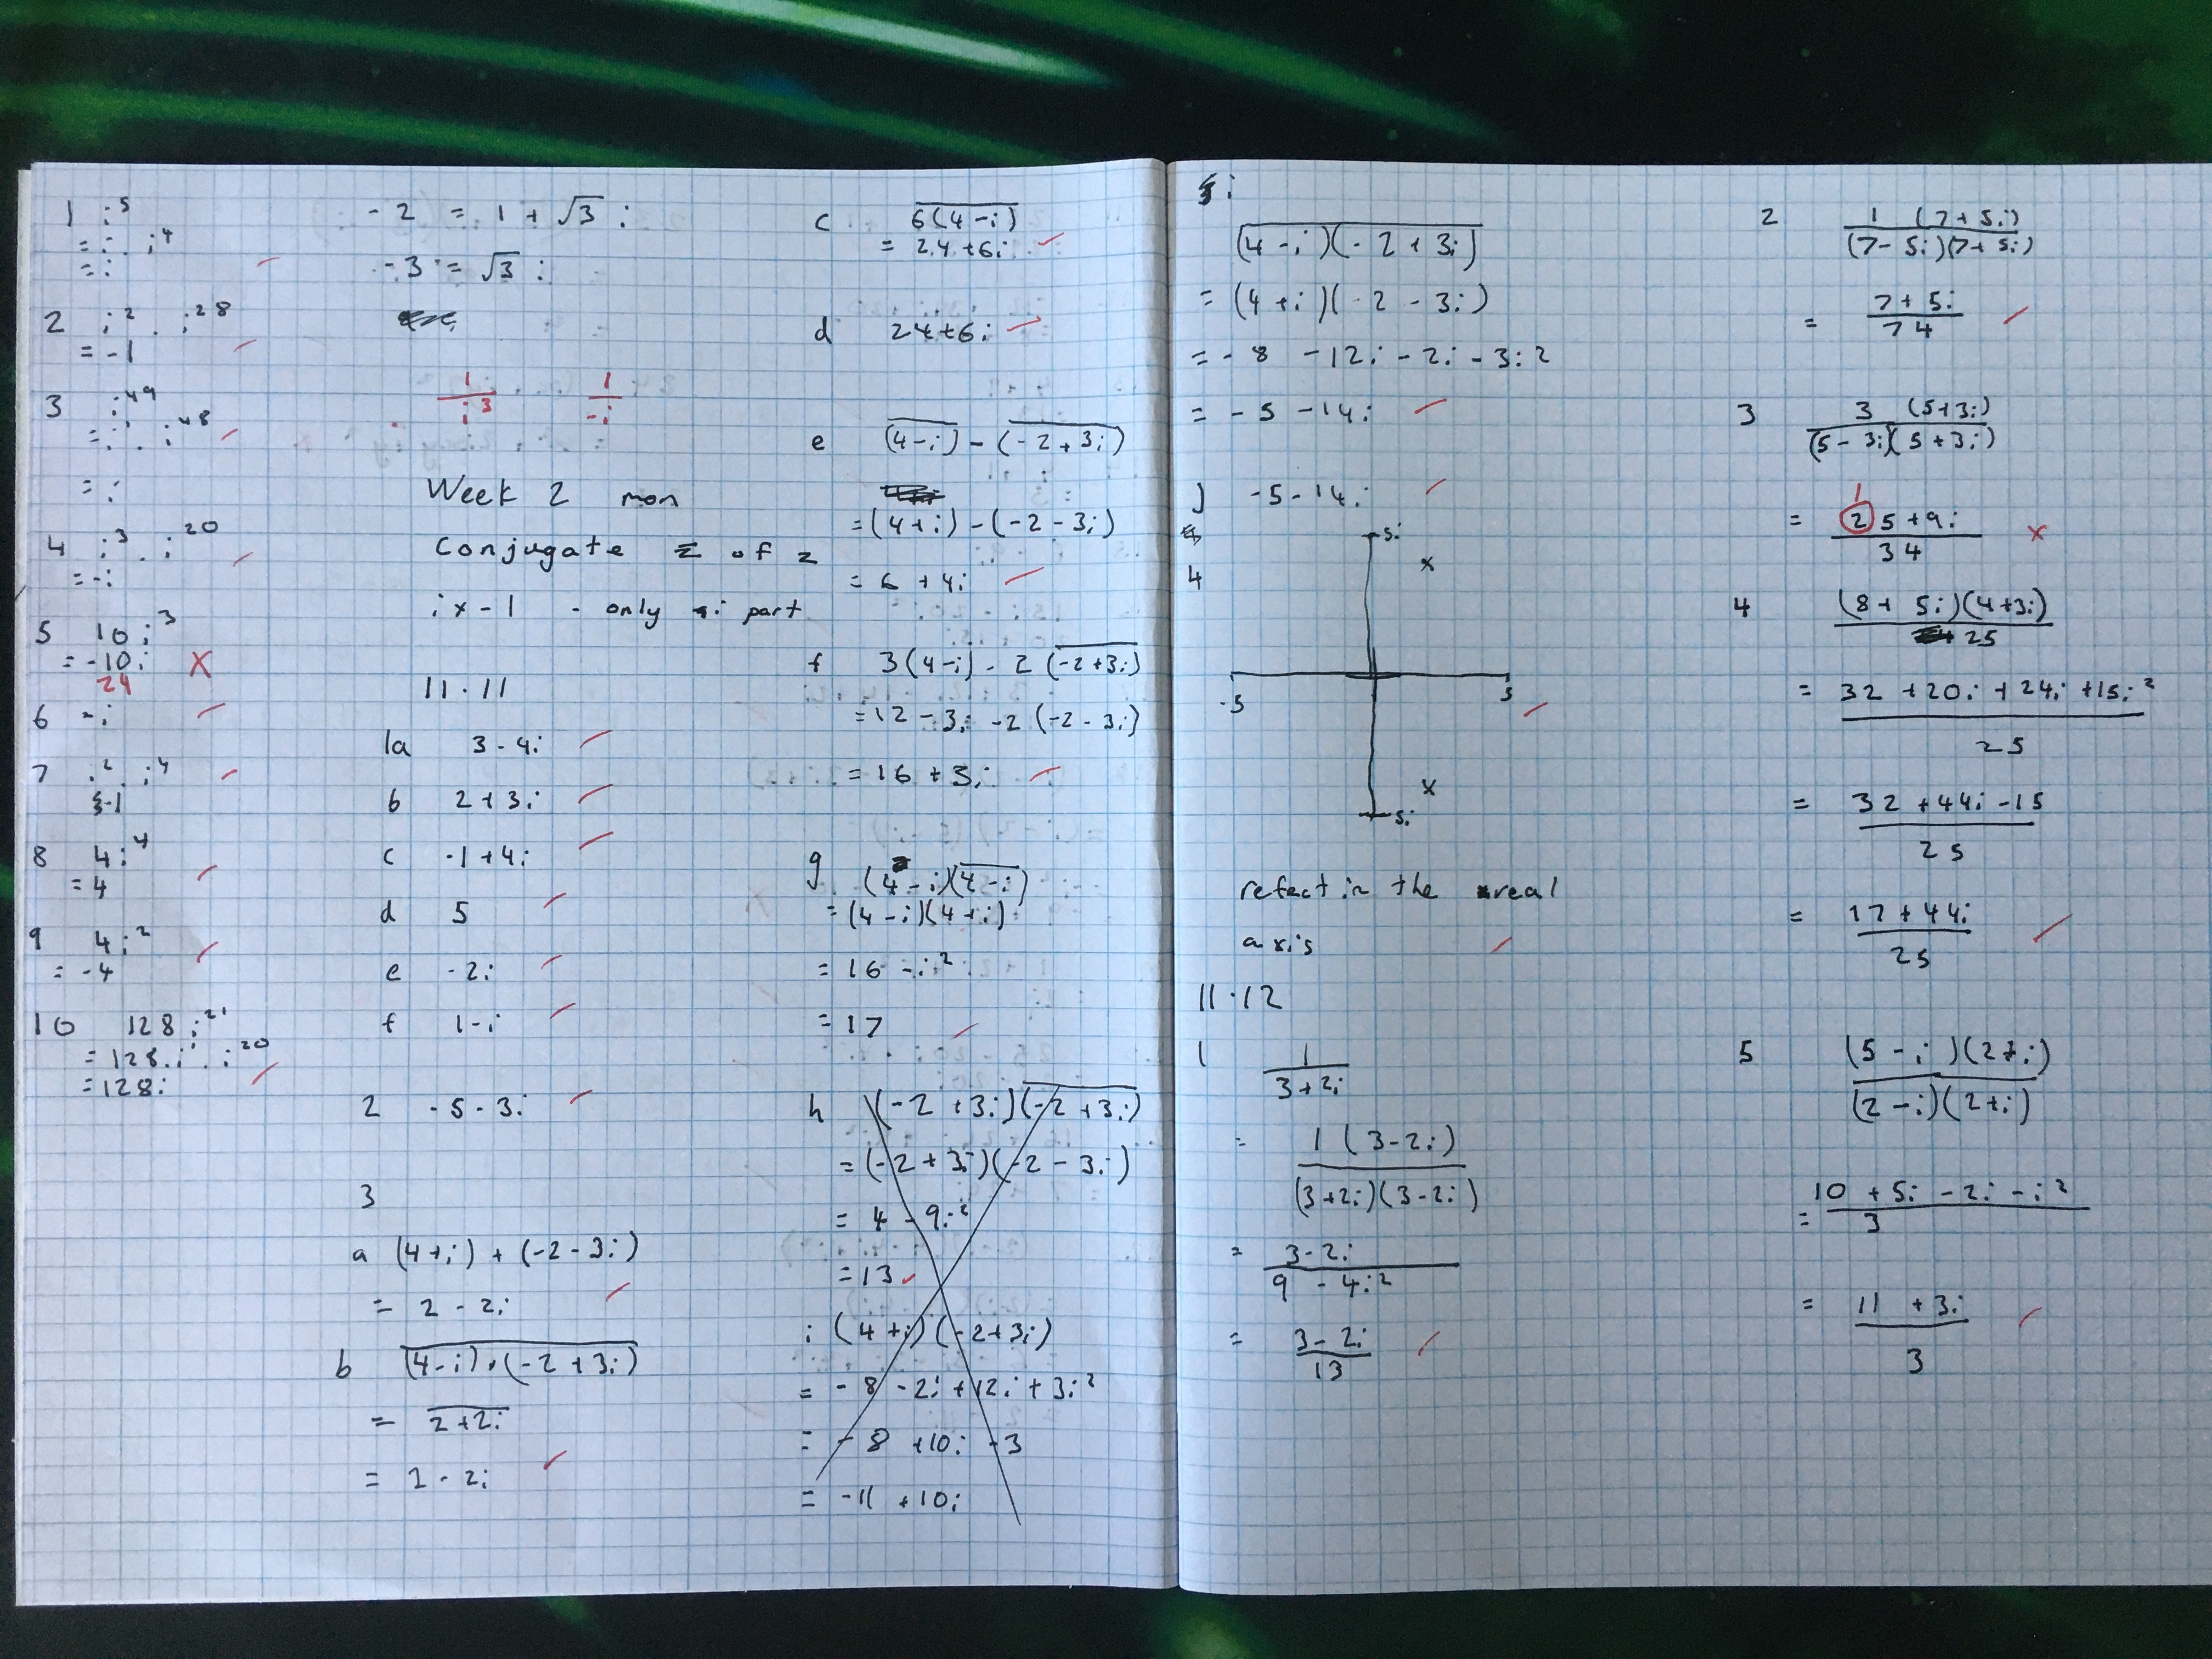 1 i⁵
= i · i⁴
= i
2 i² · i²⁸
= -1
3 i⁴⁹
= i · i⁴⁸
= i
4 i³ · i²⁰
= -i
5 16i³
= -10i X
24
6 = i
7 i² · i⁴
= -1
8 4i⁴
= 4
9 4i²
= -4
10 128i²¹
= 128 · i · i²⁰
= 128i
-2 = 1 + √3 i
-3 = √3 i
1/i³ 1/-i
Week 2 mon
Conjugate z̄ of z
i x -1 - only i part
11.11
1a 3-4i
b 2+3i
c -1+4i
d 5
e -2i
f 1-i
2 -5-3i
3
a (4+i) + (-2-3i)
= 2-2i
b (4-i)+(-2+3i)
= 2+2i
= 2-2i
c 6(4-i)
= 24+6i
d 24+6i
e (4-i) - (-2+3i)
= (4+i) - (-2-3i)
= 6+4i
f 3(4-i) - 2(-2+3i)
= 12-3i -2(-2-3i)
= 16+3i
g (4-i)(4-i)
= (4-i)(4+i)
= 16-i²
= 17
h (-2+3i)(-2+3i)
= (-2+3i)(-2-3i)
= 4-9i²
= 13
i (4+i)(-2+3i)
= -8-2i+12i+3i²
= -8+10i-3
= -11+10i
i (4-i)(-2+3i)
= (4+i)(-2-3i)
= -8-12i-2i-3i²
= -5-14i
j -5-14i
4
5i
-5 5
-5i
x
x
reflect in the real
axis
11.12
1 1/3+2i
= 1(3-2i)/(3+2i)(3-2i)
= 3-2i/9-4i²
= 3-2i/13
2 1(7+5i)/(7-5i)(7+5i)
= 7+5i/74
3 3(5+3i)/(5-3i)(5+3i)
= 25+9i/34 x
1
4 (8+5i)(4+3i)/25
= 32+20i+24i+15i²/25
= 32+44i-15/25
= 17+44i/25
5 (5-i)(2+i)/(2-i)(2+i)
= 10+5i-2i-i²/3
= 11+3i/3